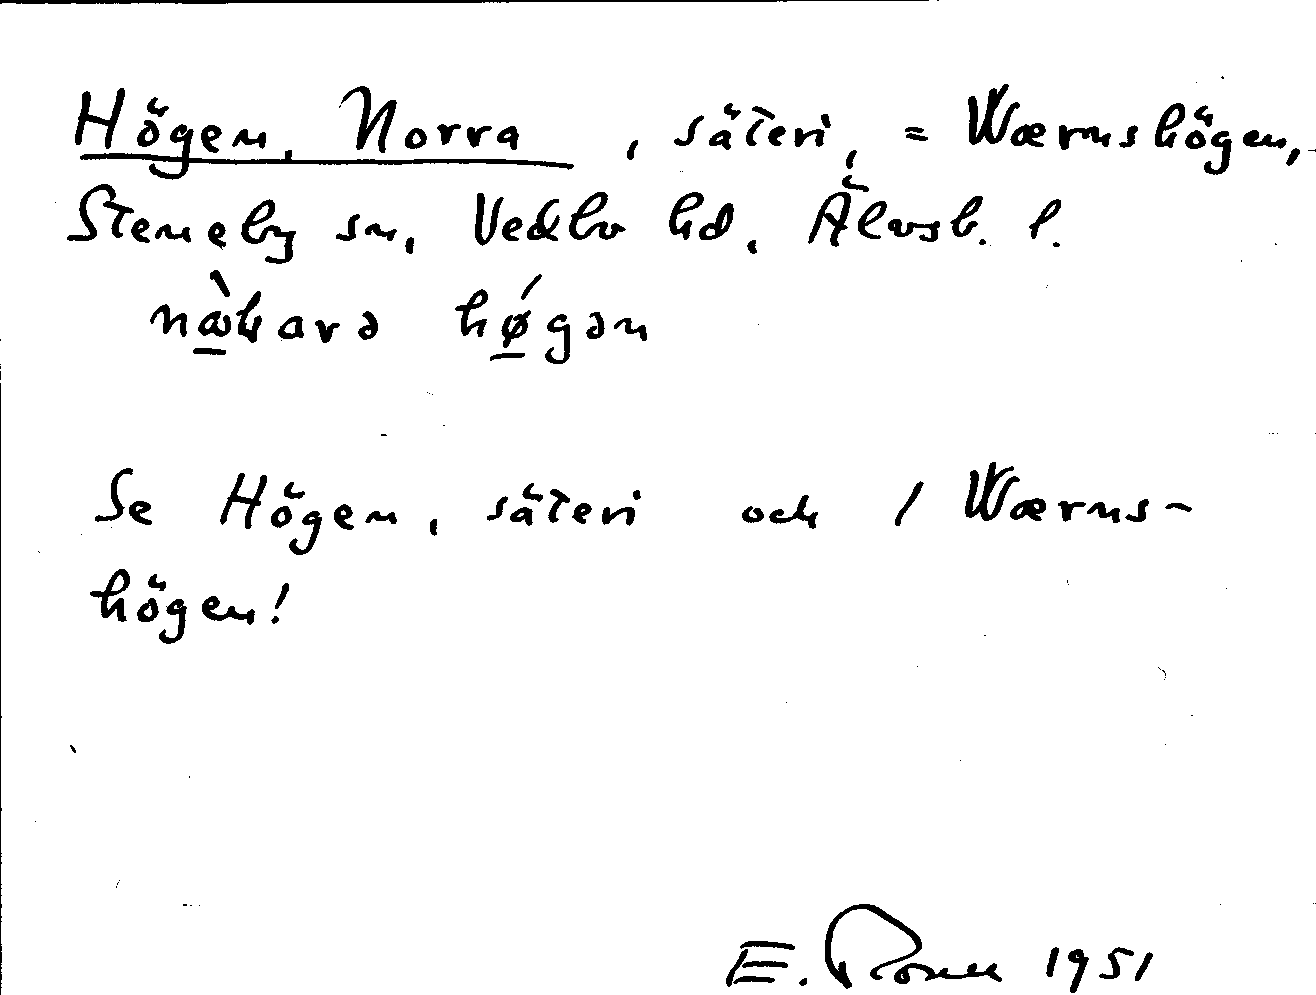 Högen, Norra, säteri, = Wærnshögen,
Steneby sn, Vedbo hd, Älvsb. l.
högən
Se Högen, säteri och / Wærns-
högen!
E. 1951